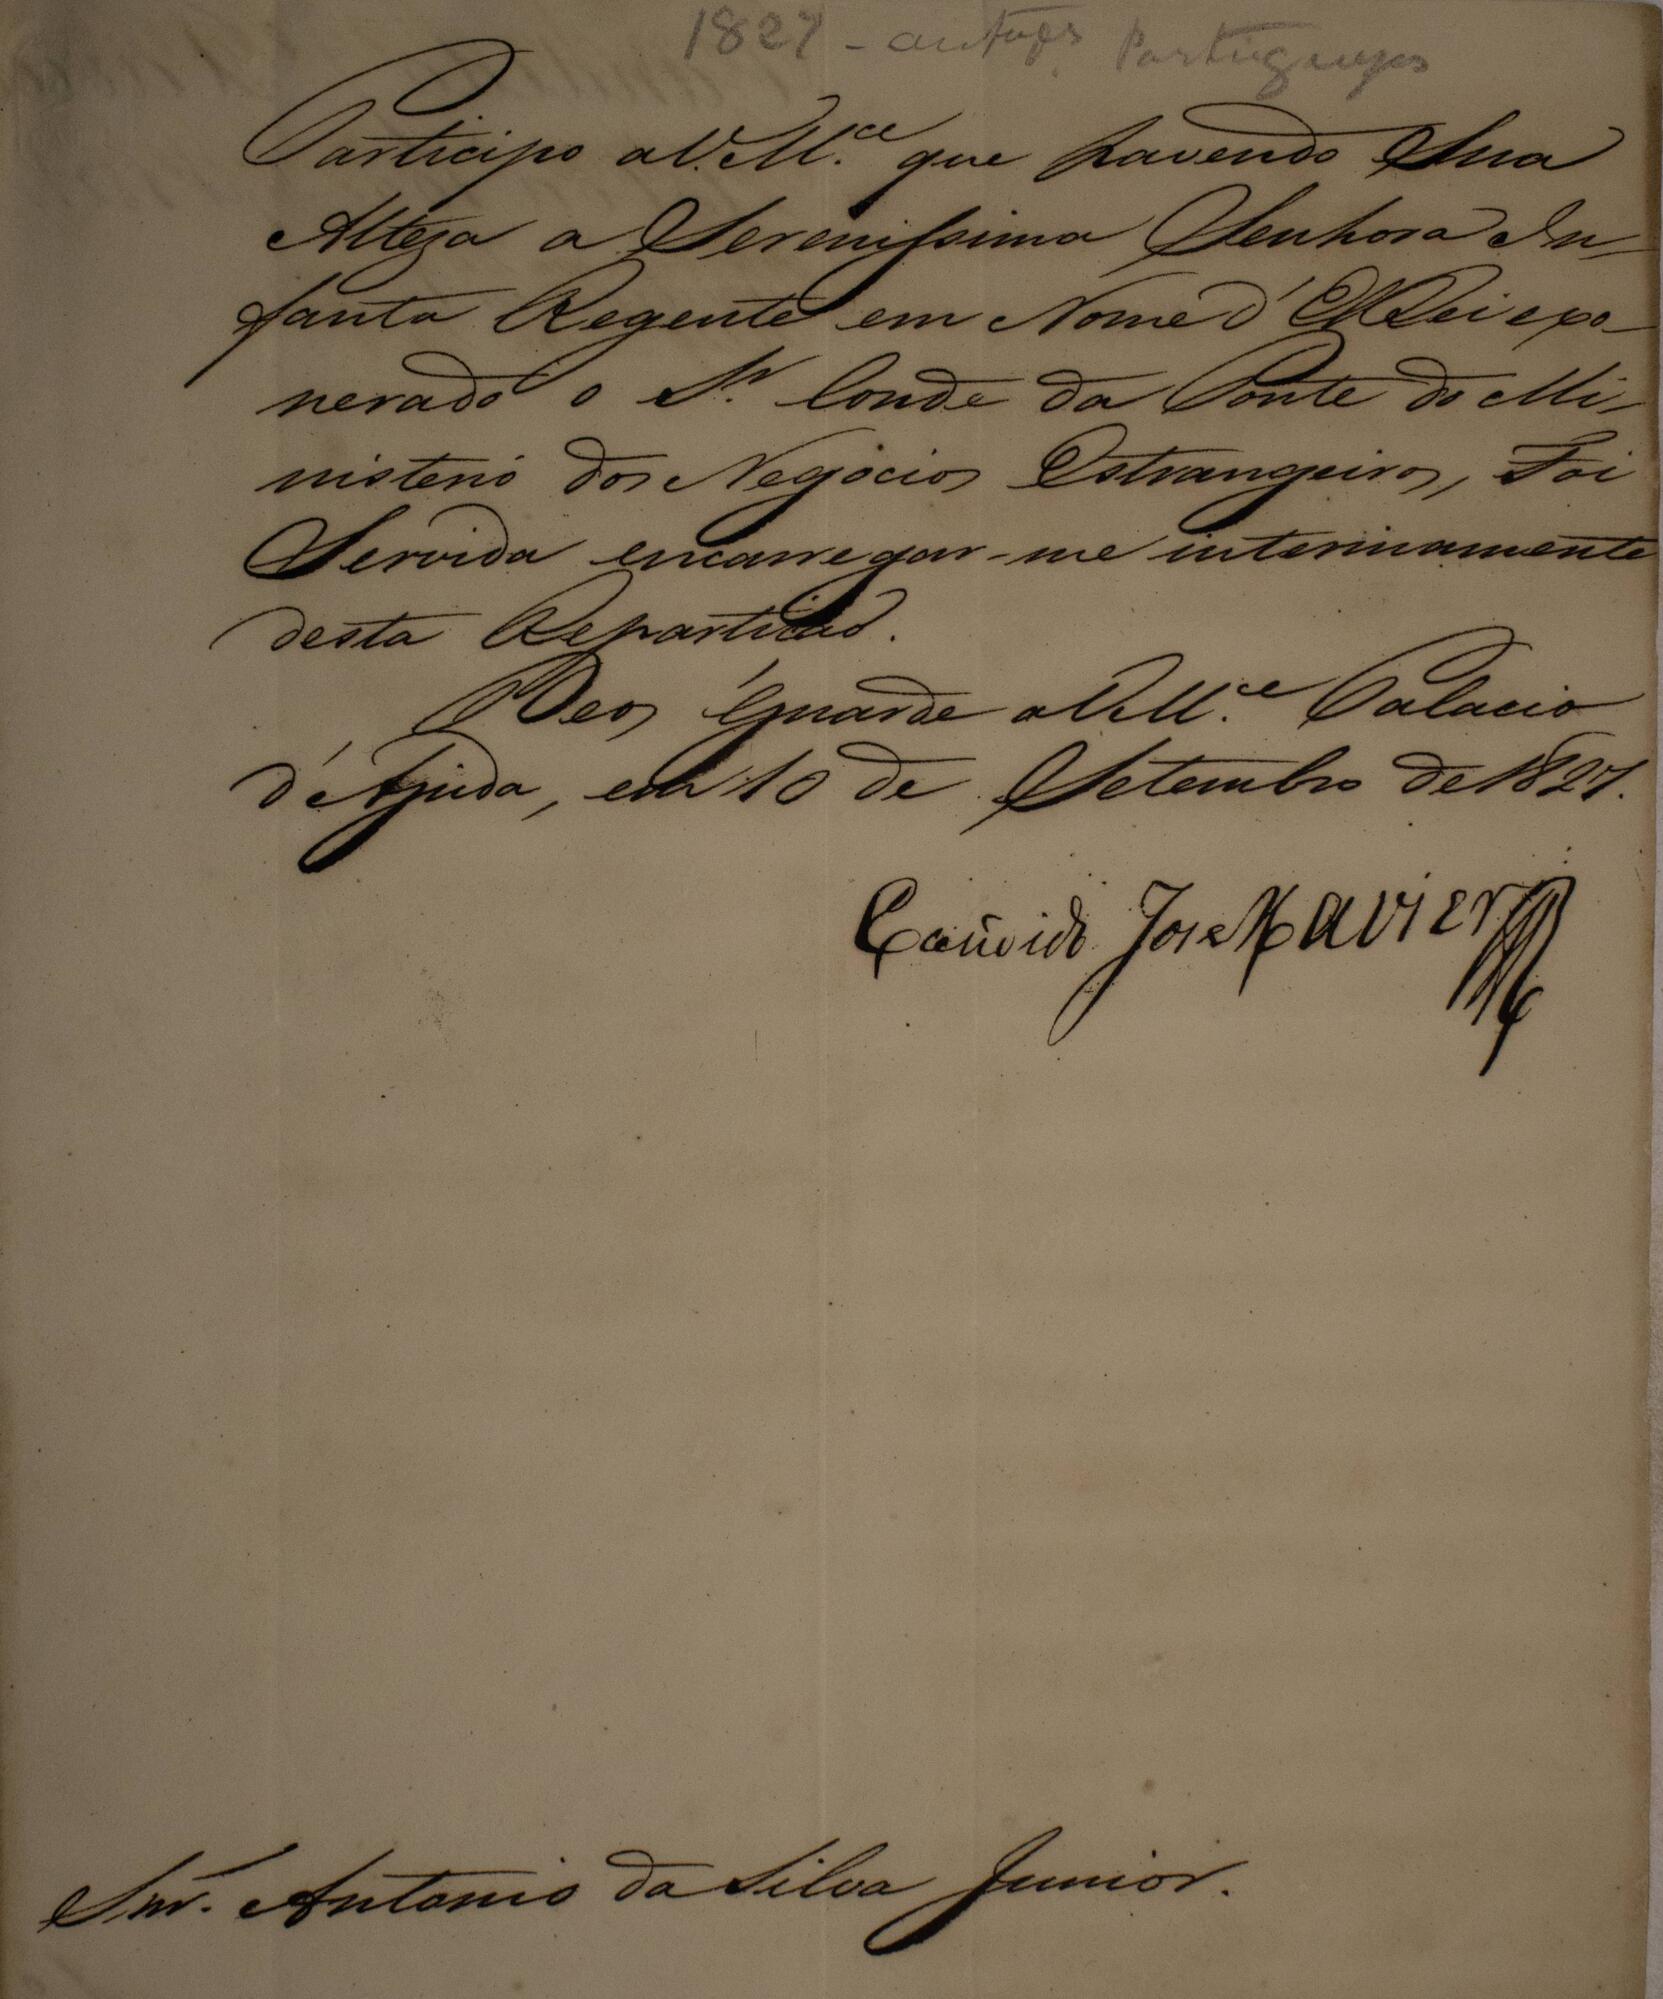 1827 - Portuguezes
Participo a V. M.ce que havendo Sua
Alteza a Serenissima Senhora In-
fanta Regente em Nome d'ElRei exo-
nerado o S.r Conde da Ponte do Mi-
nisterio dos Negocios Estrangeiros, Foi
Servida encarregar-me interinamente
desta Repartição.
Deos Guarde a V. M.ce Palacio
d'Ajuda, em 10 de Setembro de 1827.
Candido Jose Xavier
Snr. Antonio da Silva Junior.